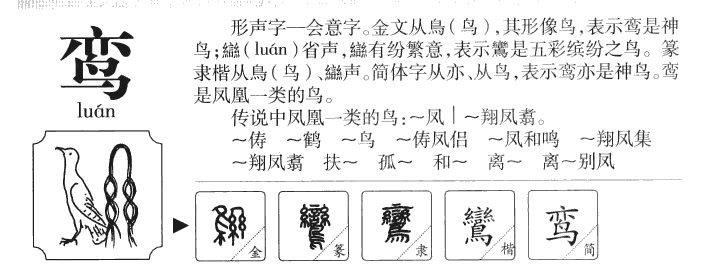 鸾
luán
形声字—会意字。金文从鳥(鸟),其形像鸟,表示鸾是神
鸟;䜌(luán)省声,䜌有纷繁意,表示鸞是五彩缤纷之鸟。篆
隶楷从鳥(鸟)、䜌声。简体字从亦、从鸟,表示鸾亦是神鸟。鸾
是凤凰一类的鸟。
传说中凤凰一类的鸟:～凤｜～翔凤翥。
～俦 ～鹤 ～鸟 ～俦凤侣 ～凤和鸣 ～翔凤集
～翔凤翥 扶～ 孤～ 和～ 离～ 离～别凤
金 鸞 篆 鸞 隶 鸞 楷 鸾 简